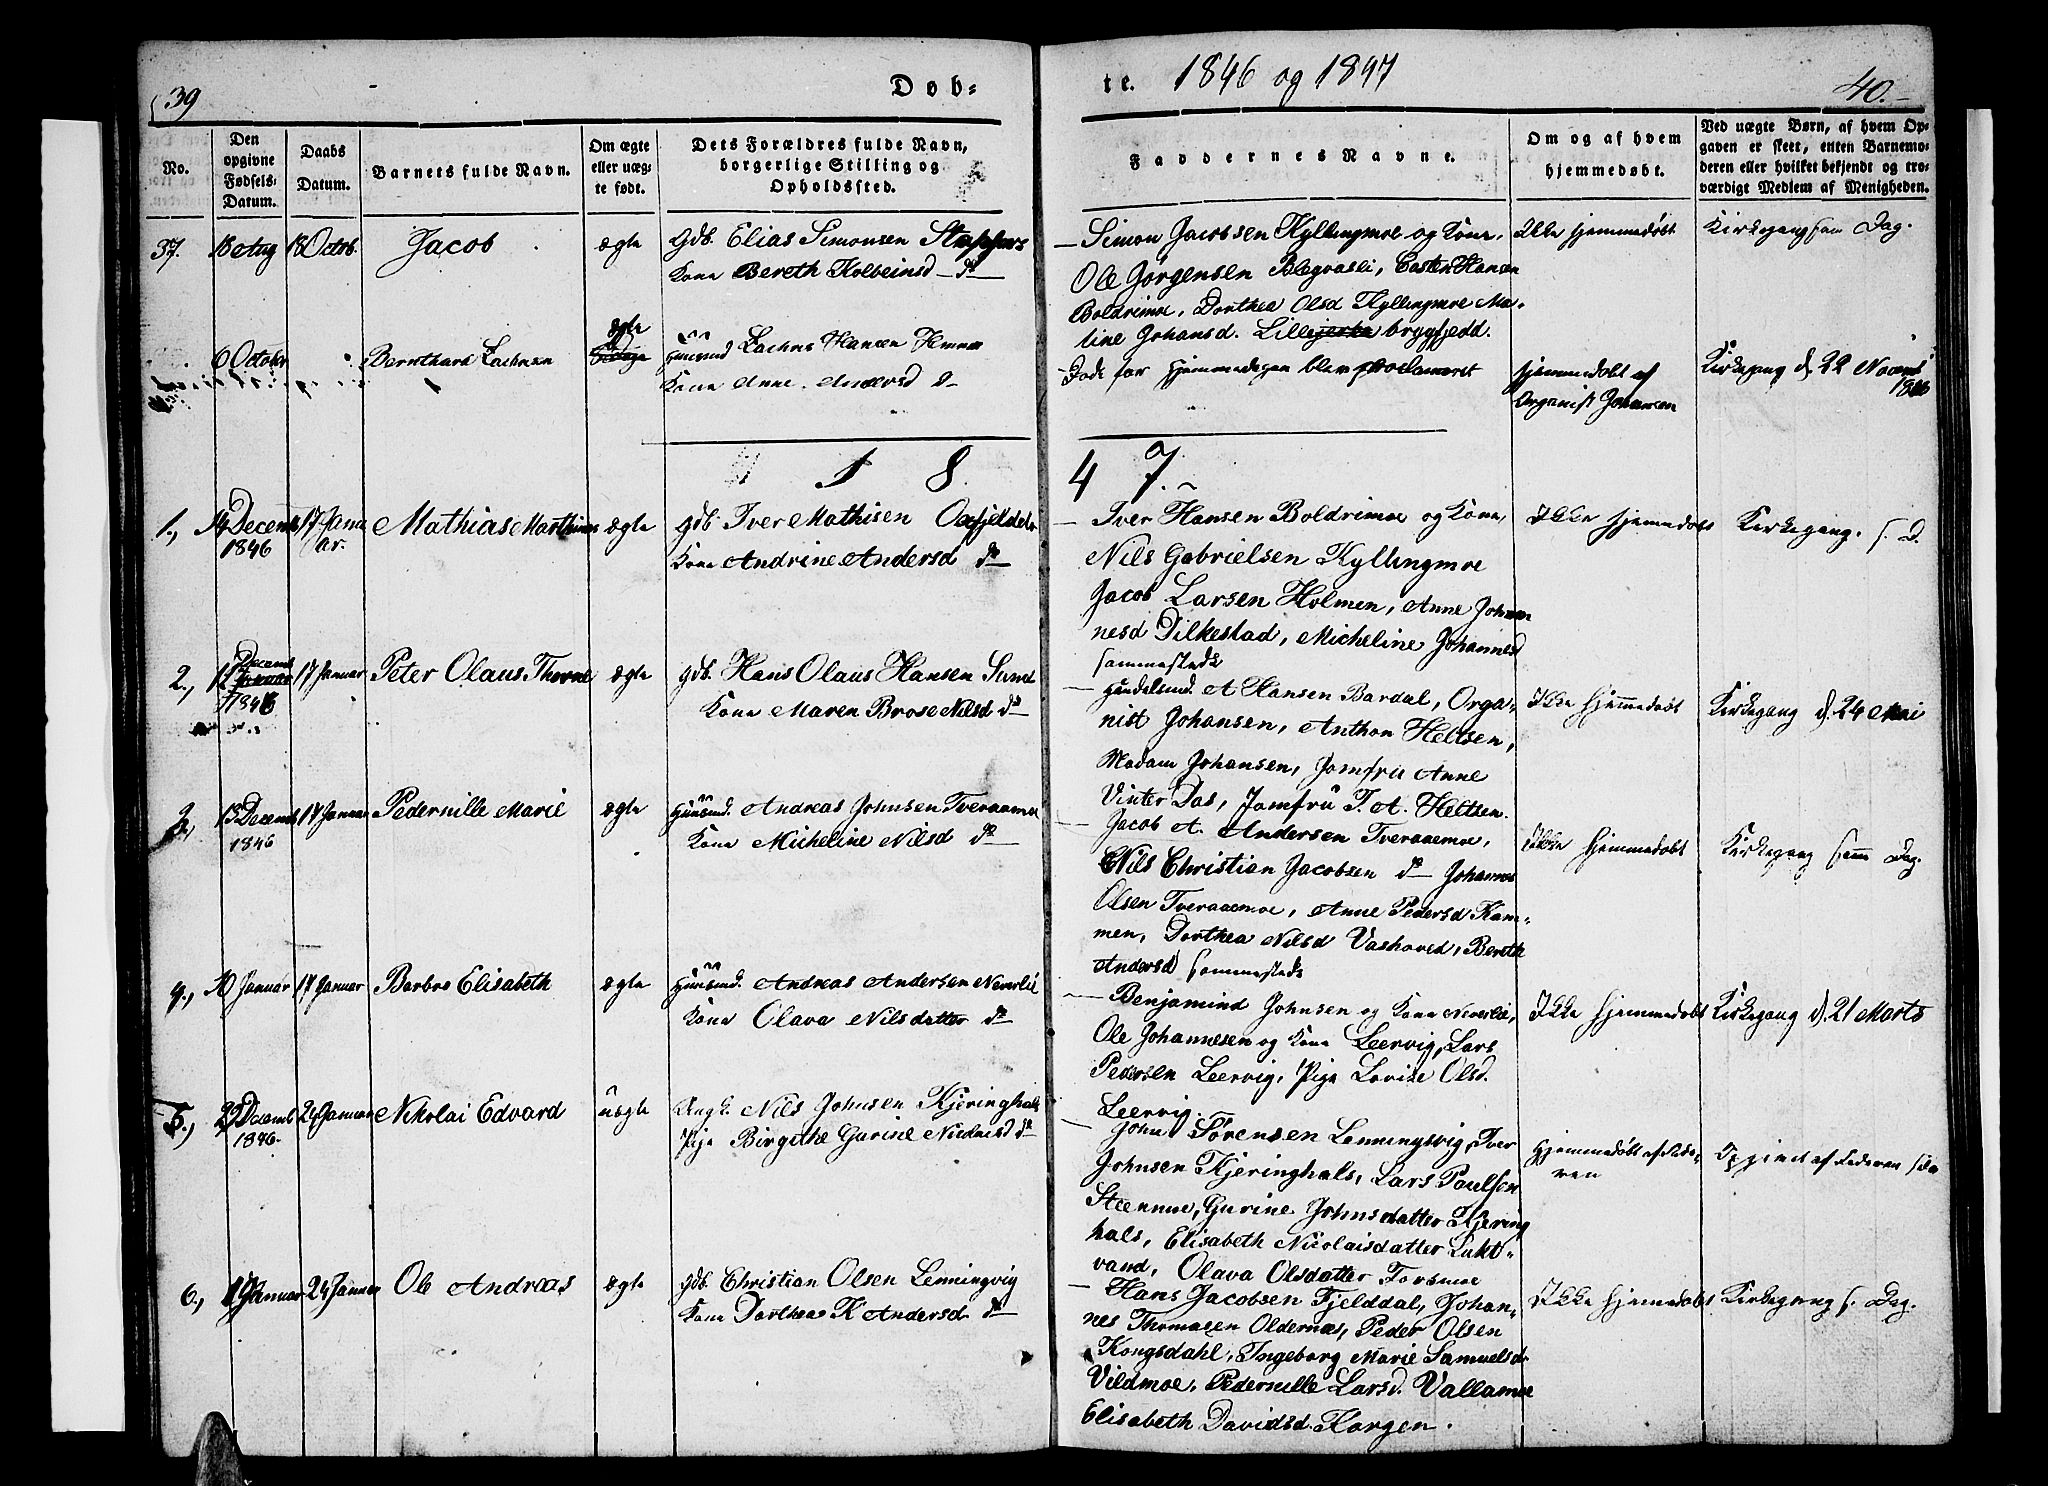 39
Døb-
te. 1846 og 1847
40.
No.
Den opgivne Fødsels-Datum.
Daabs Datum.
Barnets fulde Navn.
Om ægte eller uæg-te født.
Dets Forældres fulde Navn, borgerlige Stilling og Opholdssted.
Faddernes Navne.
Om og af hvem hjemmedøbt.
Ved uægte Børn, af hvem Op-gaven er skeet, enten Barnemo-deren eller hvilket bekjendt og tro-værdigt Medlem af Menigheden.
37. 18 Aug 18 Octob. Jacob ægte
Gdb. Elias Simonsen
Kone Bereth Kolbeinsd do
Simon Jacobsen Kyllingmoe og Kone,
Ole Jørgensen Hansen
Boldrimoe, Dorthea Olsd Kyllingmoe Ma-
line Johansd.
Ikke hjemmedøbt
Kirkegang sam Dag.
6 October Bernthard ægte
Huusmd Hansen
Kone Anne Andersd do
Døde før Hjemmedaaben blev proclameret
hjemmedøbt af
Organist Johansen
Kirkegang d. 22 Novemb
1846
1 8 4 7.
1., 14 Decemb 1846 17 Janu ar. Mathias Marthinus ægte
Gdb. Iver Mathisen Oxfjeldeln
Kone Andrine Andersd do
Iver Hansen Boldrimoe og Kone,
Nils Gabrielsen Kyllingmoe
Jacob Larsen Holmen, Anne Johan-
nesd Dilkestad, Micheline Johannesd
sammesteds
Ikke hjemmedøbt
Kirkegang s. D.
2., Decemb 1846 17 Januar Peter Olaus ægte
Gdb. Hans Olaus Hansen Sund
Kone Maren Brose Nilsd do
Handelsmd. A Hansen Bardal, Orga-
nist Johansen, Anthon Heltsen,
Madam Johansen, Jomfru Anne
Vinter Das, Jomfru T. A. Heltsen.
Ikke hjemmedøbt
Kirkegang d. 24 Mai
3., 13 Decemb 1846 17 Januar Pedernille Marie ægte
Huusmd. Andreas Johnsen Tveraaemoe
Kone Micheline Nilsd do
Jacob A. Andersen Tveraaemoe,
Nils Christian Jacobsen do Johannes
Olsen Tveraaemoe, Anne Pedersd Kam-
men, Dorthea Nilsd Vashoved, Bereth
Andersd sammesteds
Ikke hjemmedøbt
Kirkegang samme Dag.
4., 10 Januar 17 Januar Barbro Elisabeth ægte
Huusmd. Andreas Andersen Neverlie
Kone Olava Nilsdatter do
Benjamind Johnsen og Kone Neverlie,
Ole Johannesen og Kone Leervig, Lars
Pedersen Leervig, Pige Lovise Olsd.
Leervig.
Ikke hjemmedøbt
Kirkegang d. 21 Marts
5., 29 Decemb 1846. 24 Januar Nikolai Edvard uægte
Ungk. Nils Johnsen Kjeringhals
Pige Birgithe Gurine do
John Sørensen Lenningsvig, Iver
Johnsen Kjeringhals, Lars Paulsen
Steenmoe, Gurine Johnsdatter Kjering
hals, Elisabeth Nicolaisdatter Lukt-
vand, Olava Olsdatter Forsmoe
Hjemmedøbt af Fade-
ren
Opgivet af Faderen
6., 1 Januar 24 Januar Ole Andreas ægte
Gdb. Christian Olsen Lenningvig
Kone Dorthea K Andersd do
Hans Jacobsen Fjelddal, Johan-
nes Thomasen Oldernæs, Peder Olsen
Kongsdahl, Ingeborg Marie Samuelsd
Vildmoe, Pedernille Larsd. Vallamoe
Elisabeth Davidsd. Horgen.
Ikke hjemmedøbt
Kirkegang s. Dag.